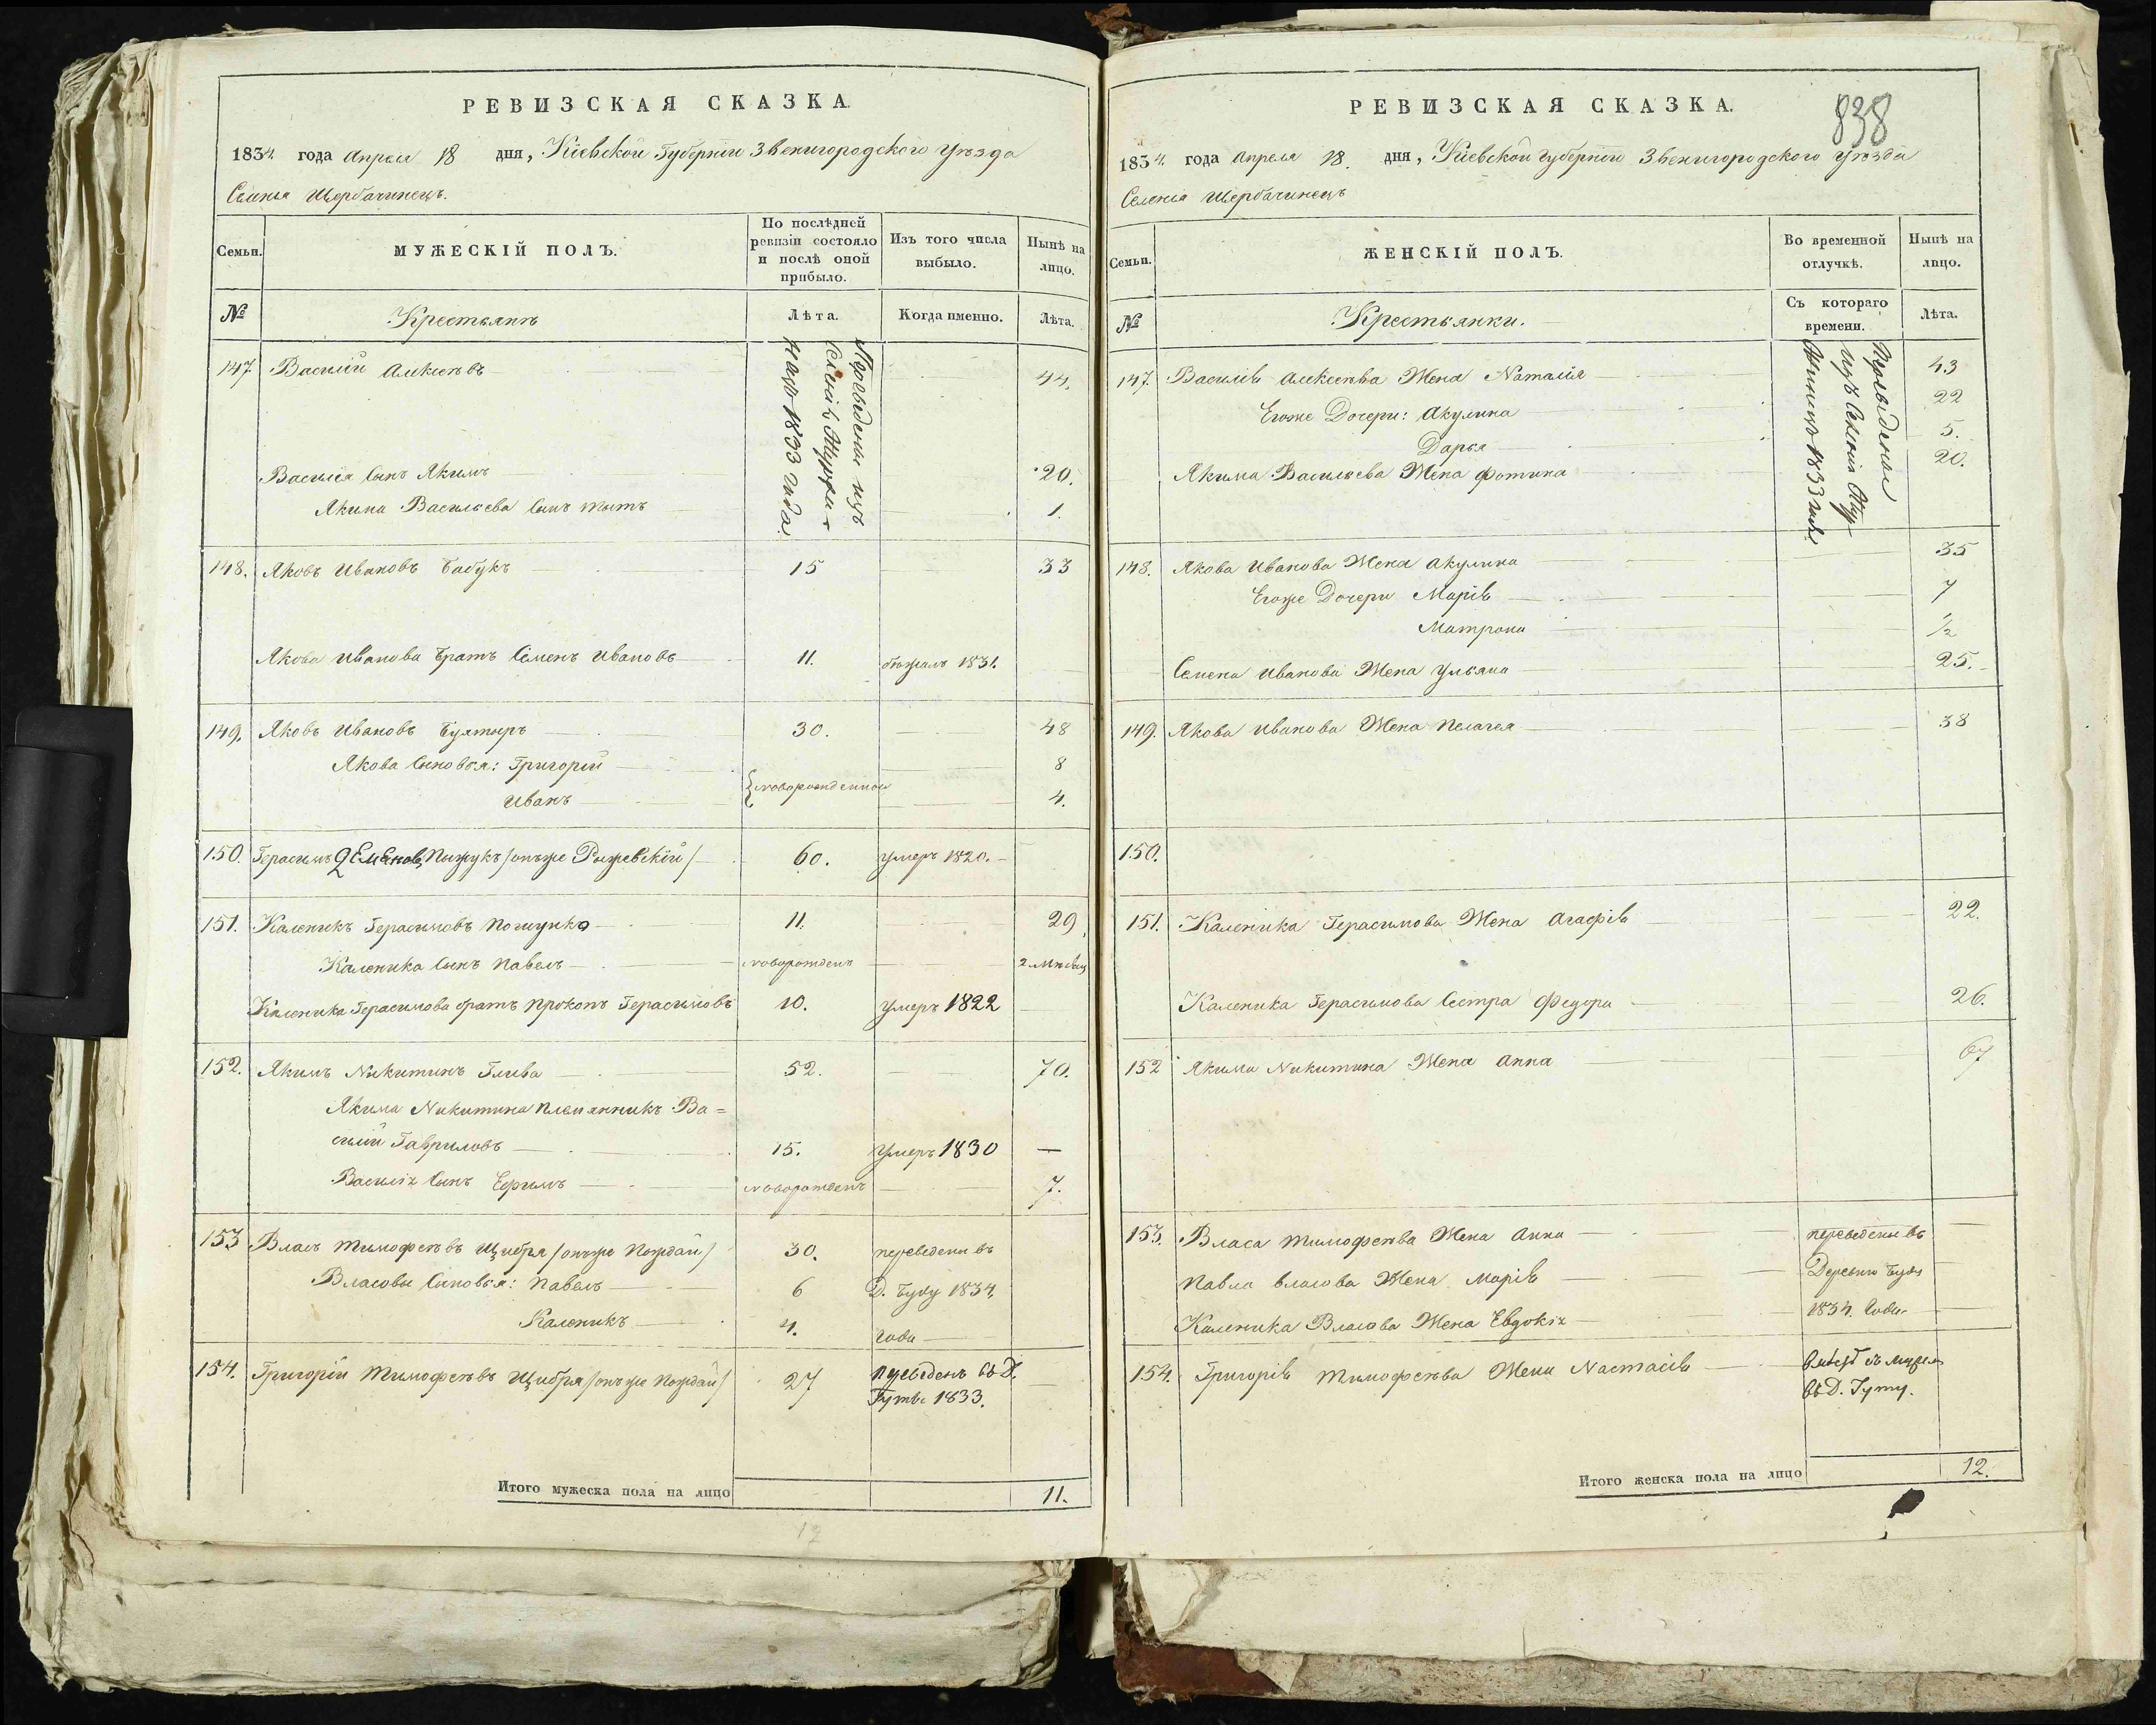 РЕВИЗСКАЯ СКАЗКА.
1834 года Апреля 18 дня, Кіевской Губерніи Звенигородского Уѣзда
Селенія Щербачинецъ.
Семьи. МУЖЕСКІЙ ПОЛЪ. По послѣдней ревизіи состояло и послѣ оной прибыло. Изъ того числа выбыло. Нынѣ на лицо.
№ Крестьянъ Лѣта. Когда именно. Лѣта.
147 Василій Алексѣевъ 44.
Переведены изъ
1833 года
Василія Сынъ Якимъ 20.
Якима Васильева Сынъ 1.
148. Яковъ Ивановъ Бабукъ 15 33
Якова Иванова Братъ Семенъ Ивановъ 11. бѣжалъ 1831.
149. Яковъ Ивановъ 30. 48
Якова Сыновья: Григорій 8
новорожденные
Иванъ 4.
150. Герасимъ Демьяновъ Пыжукъ /онъже Рыжевскій/ 60. умеръ 1820.
151. Каленикъ Герасимовъ 11. 29
Каленика Сынъ Павелъ новорожденъ 2 мѣсец
Каленика Герасимова братъ Прокопъ Герасимовъ 10. умеръ 1822
152. Якимъ Никитинъ Глива 52. 70.
Якима Никитина племянникъ Ва=
силій Гавриловъ 15. умеръ 1830 —
Василія Сынъ Ефимъ новорожденъ 7.
153 Власъ Тимофеевъ Щибря /онъже Пождай/ 30. переведены въ
Власовы Сыновья: Павелъ 6 Д. Буду 1834.
Каленикъ 4. года
154. Григорій Тимофеевъ Щибря /онъже Пождай/ 27 переведенъ въ Д.
Гуту 1833.
Итого мужеска пола на лицо 11.
РЕВИЗСКАЯ СКАЗКА. 838
1834. года Апреля 18. дня, Кіевской Губерніи Звенигородского Уѣзда
Селенія Щербачинецъ
Семьи. ЖЕНСКІЙ ПОЛЪ. Во временной отлучкѣ. Нынѣ на лицо.
№ Крестьянки. Съ котораго времени. Лѣта.
147. Василія Алексѣева Жена Наталія 43
Егоже Дочери: Акулина 22
Дарья 5.
Якима Васильева Жена Фотина 20.
Переведены
изъ Селенія
1833 года
148. Якова Иванова Жена Акулина 35
Егоже Дочери Марія 7
Матрона 1/2
Семена Иванова Жена Ульяна 25.
149. Якова Иванова Жена Пелагея 38
150.
151. Каленика Герасимова Жена Агафія 22.
Каленика Герасимова Сестра Федора 26.
152 Якима Никитина Жена Анна 67
153. Власа Тимофеева Жена Анна переведены въ
Павла Власова Жена Марія Деревню Буду
Каленика Власова Жена Евдокія 1834. Года
154. Григорія Тимофеева Жена Настасія вмѣстѣ съ мужем
въ Д. Гуту.
Итого женска пола на лицо 12.